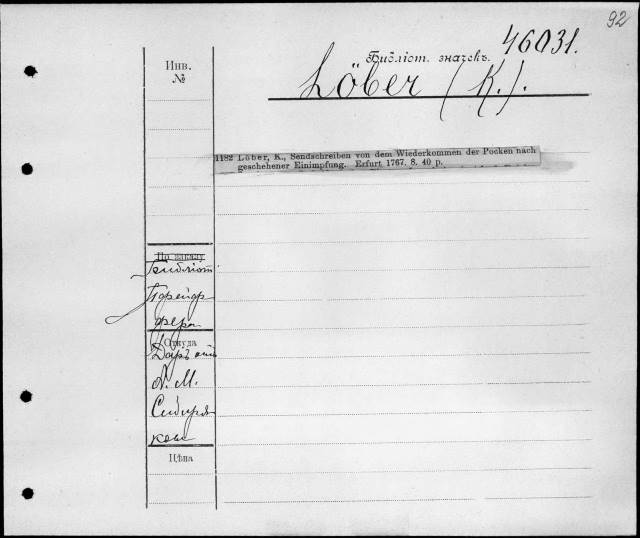 92
Библіот. значекъ. 46031.
Инв.
№
Löber (K.).
1182 Löber, K., Sendschreiben von dem Wiederkommen der Pocken nach
geschehener Einimpfung. Erfurt 1767. 8. 40 p.
По заказу
Библіот
Пфейф
фера
Откуда
Даръ отъ
А. М.
Сибиря
кова
Цѣна